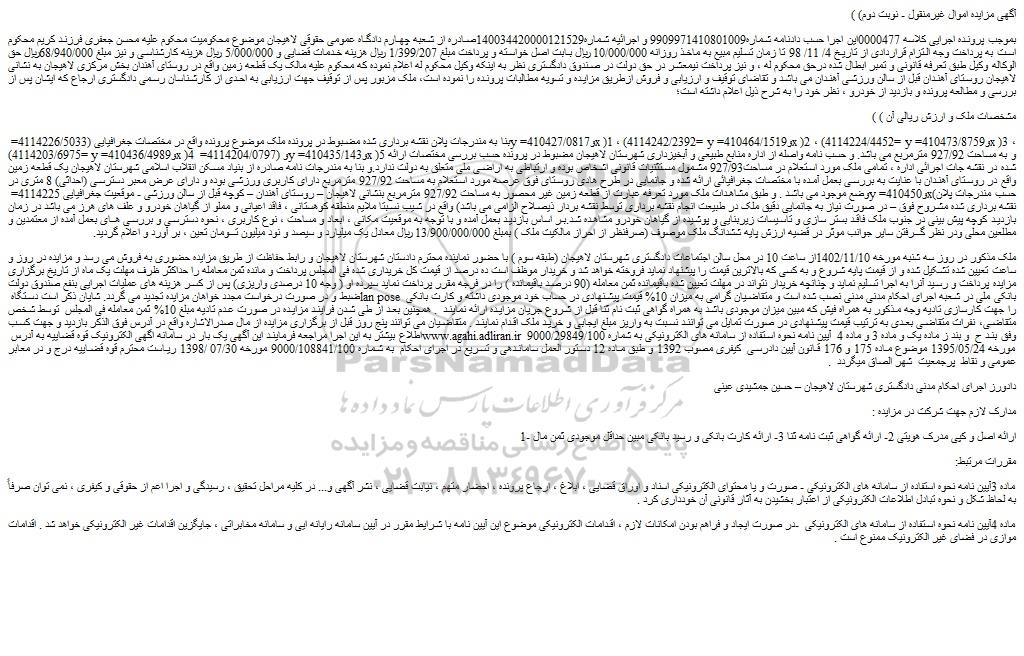 آگهی مزایده اموال غیرمنقول ـ نوبت دوم) )
بموجب پرونده اجرایی کلاسه 0000477این اجرا حسب دادنامه شماره9909971410801009 و اجرائیه شماره140034420000121529صادره از شعبه چهارم دادگاه عمومی حقوقی لاهیجان موضوع محکومیت محکوم علیه محسن جعفری فرزند کریم محکوم
است به پرداخت وجه التزام قراردادی از تاریخ 4/ 11/ 98 تا زمان تسلیم مبیع به ماخذ روزانه 10/000/000 ریال بابت اصل خواسته و پرداخت مبلغ 1/399/207 ریال هزینه خدمات قضایی و 5/000/000 ریال هزینه کارشناسی و نیز مبلغ 68/940/000ریال حق
الوکاله وکیل طبق تعرفه قانونی و تمبر ابطال شده درحق محکوم له ، و نیز پرداخت نیمعشر در حق دولت در صندوق دادگستری نظر به اینکه وکیل محکوم له اعلام نموده که محکوم علیه مالک یک قطعه زمین واقع در روستای آهندان بخش مرکزی لاهیجان به نشانی
لاهیجان روستای آهندان قبل از سالن ورزشی آهندان می باشد و تقاضای توقیف و ارزیابی و فروش ازطریق مزایده و تسویه مطالبات پرونده را نموده است، ملک مزبور پس از توقیف جهت ارزیابی به احدی از کارشناسان رسمی دادگستری ارجاع که ایشان پس از
بررسی و مطالعه پرونده و بازدید از خودرو ، نظر خود را به شرح ذیل اعلام داشته است؛
مشخصات ملک و ارزش ریالی آن ) )
بنا به مندرجات پلان نقشه برداری شده مضبوط در پرونده ملک موضوع پرونده واقع در مختصات جغرافیایی (4114226/5033= y =410427/0817و x )1 ، (4114242/2392= y =410464/1519و x )2 ، (4114224/4452= y =410473/8759و x )3 ،
(4114203/6975= y =410436/4989و x )4 =4114204/0797) و y =410435/143و x )5 و به مساحت 927/92 مترمربع می باشد. و حسب نامه واصله از اداره منابع طبیعی و آبخیزداری شهرستان لاهیجان مضبوط در پرونده حسب بررسی مختصات ارائه
شده در نقشه جات اجرائی اداره ، تمامی ملک مورد استعلام در مساحت927/93 مشمول مستثنیات قانونی اشخاص بوده و ارتباطی به اراضی ملی متعلق به دولت ندارد.و بنا به مندرجات نامه صادره از بنیاد مسکن انقلاب اسلامی شهرستان لاهیجان یک قطعه زمین
واقع در روستای آهندان با عنایت به بررسی بعمل آمده با مختصات جغرافیائی ارائه شده و جانمایی در طرح هادی روستای فوق عرصه مورد استعلام به مساحت 927/92 مترمربع دارای کاربری ورزشی بوده و دارای عرض معبر دسترسی (احداثی) 8 متری در
وضع موجود می باشد . و طبق مشاهدات ملک مورد تعرفه عبارت از قطعه زمین غیر محصور به مساحت 927/92 مترمربع بنشانی لاهیجان – روستای آهندان – کوچه قبل از سالن ورزشی - موقعیت جغرافیایی 4114225= y =410450و x )حسب مندرجات پلان
نقشه برداری شده مشروح فوق – در صورت نیاز به جانمایی دقیق ملک در طبیعت انجام نقشه برداری توسط نقشه بردار ذیصلاح الزامی می باشد) واقع در شیب نسبتا ملایم منطقه کوهستانی ، فاقد اعیانی و مملو از گیاهان خودرو و علف های هرز می باشد در زمان
بازدید کوچه پیش بینی در جنوب ملک فاقد بستر سازی و تاسیسات زیربنایی و پوشیده از گیاهان خودرو مشاهده شد.بر اساس بازدید بعمل آمده و با توجه به موقعیت مکانی ، ابعاد و مساحت ، نوع کاربری ، نحوه دسترسی و بررسی های بعمل آمده از معتمدین و
مطلعین محلی ودر نظر گرفتن سایر جوانب موثر در قضیه ارزش پایه ششدانگ ملک موصوف (صرفنظر از احراز مالکیت ملک ) بمبلغ 13/900/000/000 ریال معادل یک میلیارد و سیصد و نود میلیون تسومان تعین ، بر آورد و اعلام گردید.
ملک مذکور در روز سه شنبه مورخه 1402/11/10از ساعت 10 در محل سالن اجتماعات دادگستری شهرستان لاهیجان (طبقه سوم ) با حضور نماینده محترم دادستان شهرستان لاهیجان و رابط حفاظت از طریق مزایده حضوری به فروش می رسد و مزایده در روز و
ساعت تعیین شده تشکیل شده و از قیمت پایه شروع و به کسی که بالاترین قیمت را پیشنهاد نماید فروخته خواهد شد و خریدار موظف است ده درصد از قیمت کل خریداری شده فی المجلس پرداخت و مانده ثمن معامله را حداکثر ظرف مهلت یک ماه از تاریخ برگزاری
مزایده پرداخت و رسید آنرا به اجرا تسلیم نماید و چنانچه خریدار نتواند در مهلت تعیین شده باقیمانده ثمن معامله (90 درصد باقیمانده ) را در فرجه مقرر پرداخت نماید سپرده او ( وجه 10 درصدی واریزی) پس از کسر هزینه های عملیات اجرایی بنفع صندوق دولت
ضبط و در صورت درخواست مجدد خواهان مزایده تجدید می گردد. شایان ذکر است دستگاه lan pose بانکی ملی در شعبه اجرای احکام مدنی مدنی نصب شده است و متقاضیان گرامی به میزان %10 قیمت پیشنهادی در حساب خود موجودی داشته و کارت بانکی
را جهت کارسازی تادیه وجه مذکور به همراه فیش که مبین میزان موجودی باشد به همراه گواهی ثبت نام ثنا قبل از شروع جریان مزایده ارائه نمایند . همچنین بعد از طی شدن فرایند مزایده در صورت عدم تادیه مبلغ %10 ثمن معامله فی المجلس توسط شخص
متقاضی، نفرات متقاضی بعدی به ترتیب قیمت پیشنهادی در صورت تمایل می توانند نسبت به واریز مبلغ ایجابی و خرید ملک اقدام نمایند . متقاضیان می توانند پنج روز قبل از برگزاری مزایده از مال صدرالاشاره واقع در آدرس فوق الذکر بازدید و جهت کسب
اطلاع بیشتر به این اجرا مراجعه فرمایند این آگهی یک بار در سامانه آگهی الکترونیک قوه قضاییه به آدرس www.agahi.adliran.ir وفق بند ح و بند ز ماده یک و ماده 3 و ماده 4 آیین نامه نحوه استفاده از سامانه های الکترونیکی به شماره 9000/29849/100
مورخه 1395/05/24 موضوع ماده 175 و 176 قانون آیین دادرسی کیفری مصوب 1392 و طبق ماده 12 دستور العمل ساماندهی و تسریع در اجرای احکام به شماره 9000/108841/100 مورخه 07/30 /1398 ریاست محترم قوه قضاییه درج و در معابر
عمومی و نقاط پرجمعیت شهر الصاق میگردد .
دادورز اجرای احکام مدنی دادگستری شهرستان لاهیجان – حسین جمشیدی عینی
مدارک لازم جهت شرکت در مزایده :
ارائه اصل و کپی مدرک هویتی 2- ارائه گواهی ثبت نامه ثنا 3- ارائه کارت بانکی و رسید بانکی مبین حداقل موجودی ثمن مال -1
مقررات مرتبط:
ماده 3آیین نامه نحوه استفاده از سامانه های الکترونیکی - صورت و یا محتوای الکترونیکی اسناد و اوراق قضایی ، ابلاغ ، ارجاع پرونده ، احضار متهم ، نیابت قضایی ، نشر آگهی و... در کلیه مراحل تحقیق ، رسیدگی و اجرا اعم از حقوقی و کیفری ، نمی توان صرفاً
به لحاظ شکل و نحوه تبادل اطلاعات الکترونیکی از اعتبار بخشیدن به آثار قانونی آن خودداری کرد .
ماده 4آیین نامه نحوه استفاده از سامانه های الکترونیکی ـدر صورت ایجاد و فراهم بودن امکانات لازم ، اقدامات الکترونیکی موضوع این آیین نامه با شرایط مقرر در آیین سامانه رایانه ایی و سامانه مخابراتی ، جایگزین اقدامات غیر الکترونیکی خواهد شد . اقدامات
موازی در فضای غیر الکترونیک ممنوع است .
ParsNamadData
مرکز فرآوری اطلاعات پارس نماد داده ها
پایگاه خبری رسانی مناقصه و مزایده
۰۲۱-۸۸۳۴۹۶۷۰-۵